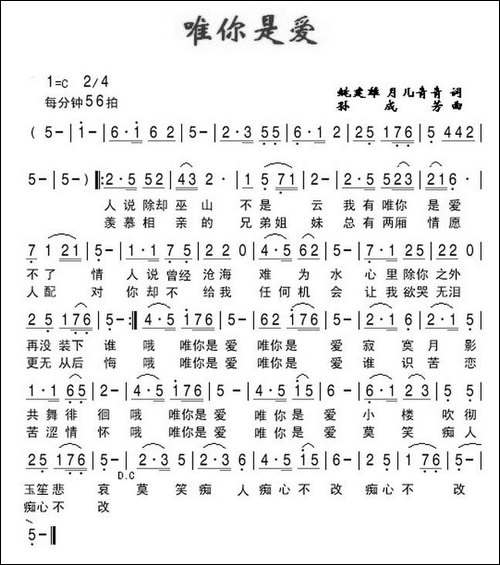 唯你是爱
1=C 2/4
每分钟56拍
姚建雄 月儿青青 词
孙成芳 曲
(5-|i-|6·i 6 2|5-|2·3 55|6·1 2|25 176|5 442|
5-|5-):2·5 52|43 2·|1 571|2-|2·5 523|216·|
人说除却巫山 不是 云 我有唯你 是爱
羡慕相亲的 兄弟姐 妹 总有两厢 情愿
7 1 21|5-|1·1 7 5|2 2 0|4·5 62|5-|25 123|2 2 0|
不了 情 人说曾经 沧海 难为 水 心里除你 之外
人配 对 你却不 给我 任何机 会 让我欲哭 无泪
2 5 176|5-:4·5 176|5-|62 176|5-|2·5 4|2·5|
再没 装下 谁 哦 唯你是 爱 唯你是 爱 寂寞 月影
更无 从后 悔 哦 唯你是 爱 唯你是 爱 谁识 苦恋
1·1 65|2-|4·5 176|5-|4·5 i5|6-|6·1 23|5 5|
共舞 徘徊 哦 唯你是 爱 唯你是 爱 小楼 吹彻
苦涩 情怀 哦 唯你是 爱 唯你是 爱 莫笑 痴人
25 176|5-|2·34|5 2|4·5 i5|6-|4·5 i5|6-|
D.C
玉笙悲 哀 莫笑 痴人 痴心不 改 痴心不 改
痴心不 改
5-‖